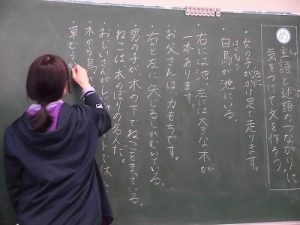 め
主語と述語のつながりに
気をつけて文を作ろう。
・女の子がかけ足で走ります。
・白鳥が池にいる。
・右には池、左には大きな木が
一本あります。
・お父さんは力もちです。
・右と左に矢じるしがむいている。
・男の子が木の下でねこをまっている。
・ねこは木のぼりの名人だ。
・おじいさんが
で休
・木から鳥
・草む